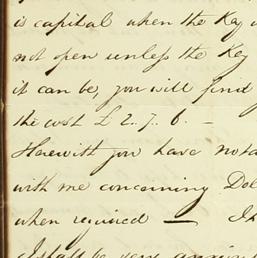 is capital when the Key
not open unless the Key
it can be, you will find
the cost £ 2.. 7.. 6. —
Herewith you have nota
with me concerning Dol
when required — I h
I shall be very anxiou